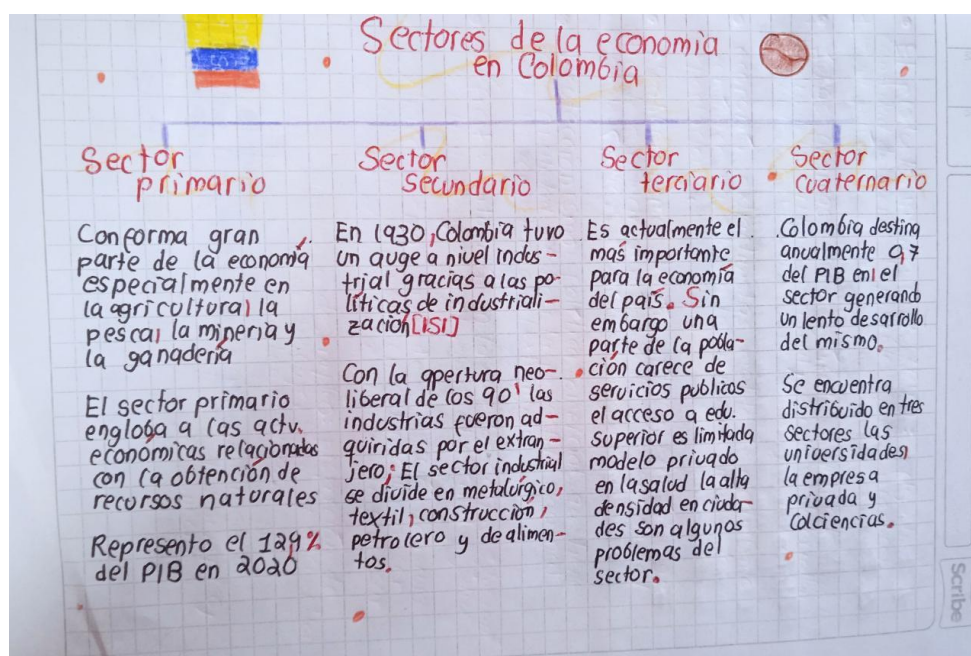 Sectores de la economia
en Colombia
Sector
primario
Conforma gran
parte de la economía
especialmente en
la agricultura, la
pesca, la minería y
la ganadería
El sector primario
engloba a las actv.
económicas relacionadas
con la obtención de
recursos naturales
Represento el 12,9%
del PIB en 2020
Sector
secundario
En 1930, Colombia tuvo
un auge a nivel indus-
trial gracias a las po-
líticas de industriali-
zación [ISI]
Con la apertura neo-
liberal de los 90' las
industrias fueron ad-
quiridas por el extran-
jero; El sector industrial
se divide en metalúrgico,
textil, construcción,
petrolero y de alimen-
tos.
Sector
terciario
Es actualmente el
más importante
para la economía
del país. Sin
embargo una
parte de la pobla-
ción carece de
servicios publicos
el acceso a edu.
superior es limitada
modelo privado
en la salud la alta
densidad en ciuda-
des son algunos
problemas del
sector.
Sector
cuaternario
Colombia destina
anualmente 0,7
del PIB en el
sector generando
un lento desarrollo
del mismo.
Se encuentra
distribuido en tres
sectores las
universidades,
la empresa
privada y
Colciencias.
Scribe